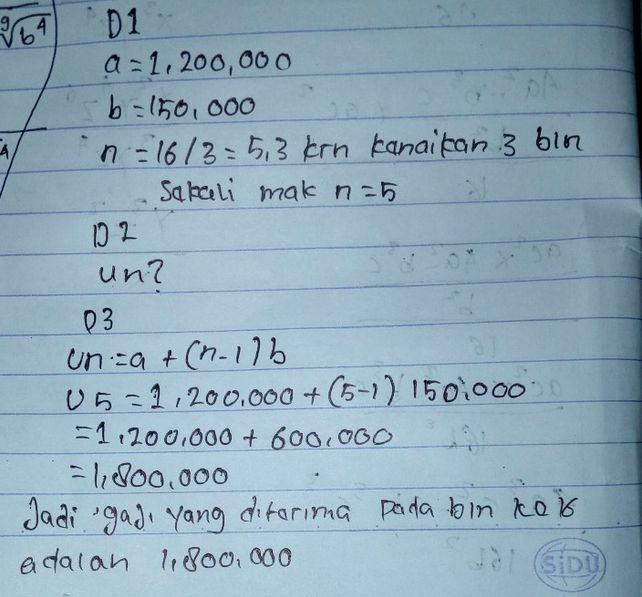 ⁹√b⁴
D1
a = 1,200,000
b = 150,000
n = 16/3 = 5,3 krn kanaikan 3 bln
Sakali mak n = 5
D2
un?
D3
Un = a + (n-1) b
U5 = 1,200.000 + (5-1) 150.000
= 1.200,000 + 600,000
= 1,800.000
Jadi gaji yang ditarima pada bln ke 16
adalah 1,800.000
SiDU